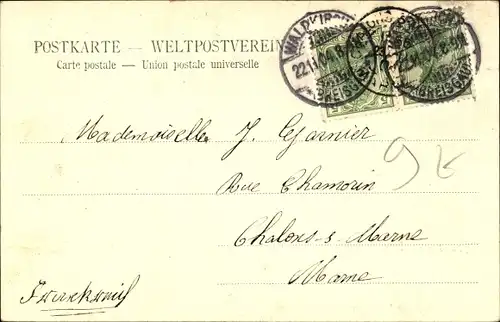 POSTKARTE – WELTPOSTVEREIN
Carte postale – Union postale universelle
WALDKIRCH
22.11.04.8-
(BREISGAU)
Mademoiselle J. Garnier
Rue Chamorin
Chalons-s-Marne
Marne
Frankreich
9 €